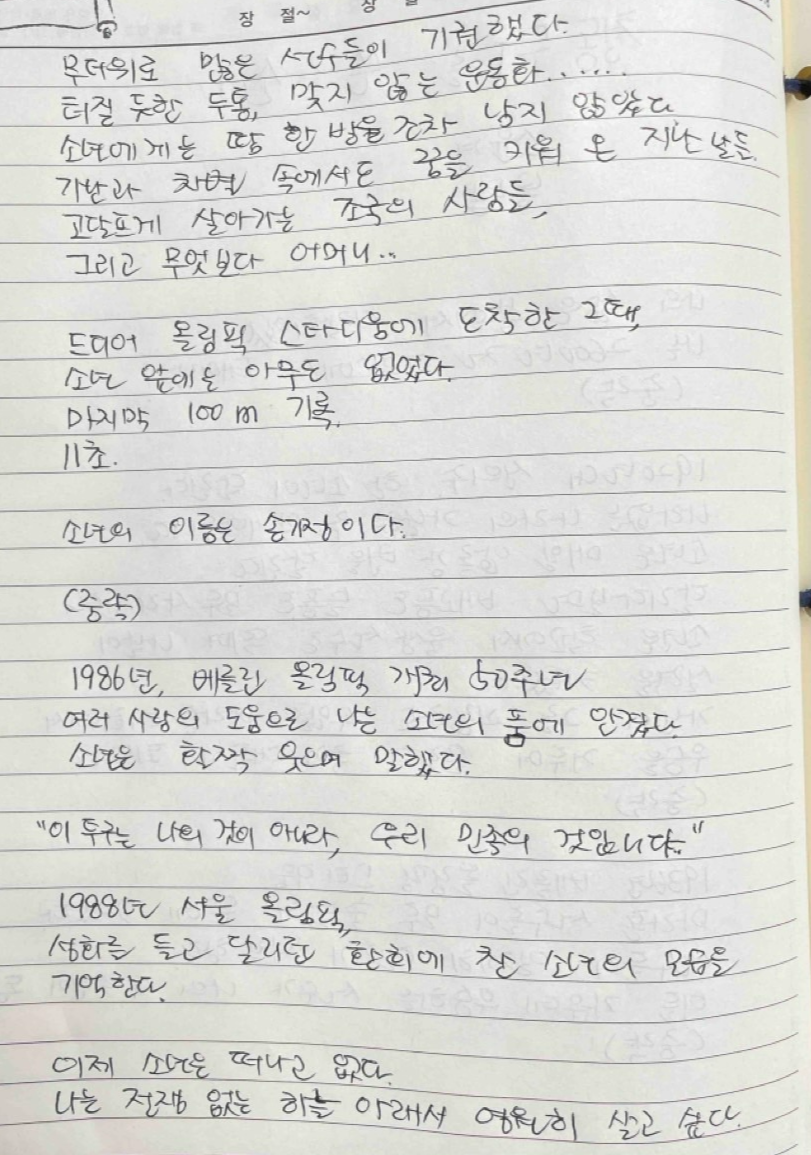 장 절~ 장 절
무더위로 많은 선수들이 기권했다.
터질 듯한 두통, 맞지 않는 운동화......
소년에게는 땀 한 방울조차 남지 않았다
가난과 차별 속에서도 꿈을 키워 온 지난 날들.
고달프게 살아가는 조국의 사람들,
그리고 무엇보다 어머니..
드디어 올림픽 스타디움에 도착한 그때,
소년 앞에는 아무도 없었다.
마지막 100m 기록.
11초.
소년의 이름은 손기정이다.
(중략)
1986년, 베를린 올림픽 개최 50주년
여러 사람의 도움으로 나는 소년의 품에 안겼다.
소년은 활짝 웃으며 말했다.
"이 투구는 나의 것이 아니라, 우리 민족의 것입니다."
1988년 서울 올림픽,
성화를 들고 달리던 환희에 찬 소년의 모습을
기억한다.
이제 소년은 떠나고 없다.
나는 전쟁 없는 하늘 아래서 영원히 살고 싶다.